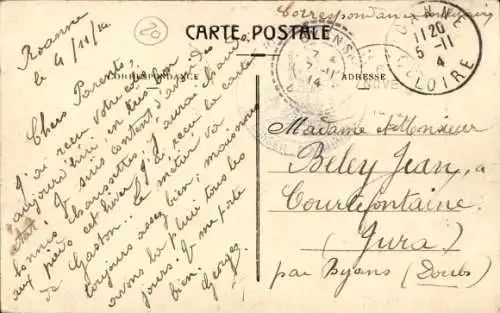 Correspondance militaire
CARTE POSTALE
CORRESPONDANCE
ADRESSE
Roanne
le 4/11/14
Chers Parents,
J'ai reçu votre
aujourd'hui, en bon
état. Je suis content d'avoir des
bonnes chaussettes, j'aurai chaud
aux pieds cet hiver. J'ai reçu la carte
de Gaston. Le métier va
toujours assez bien, mais nous
avons la pluie tous les
jours. Je me porte
bien. Georges
ROANNE
11 20
5 - 11
LOIRE
Madame & Monsieur
Beley Jean, à
Courtefontaine
(Jura)
par Byans (Doubs)